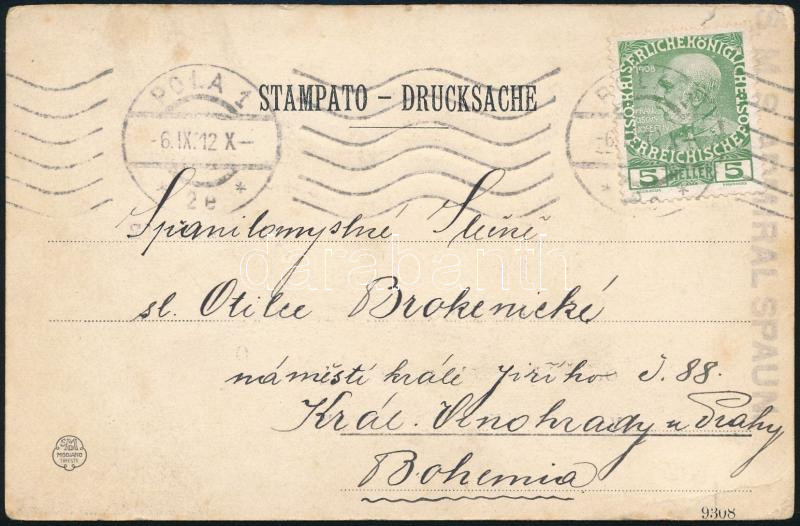 POLA 1
-6.IX.12 X-
* 2e *
STAMPATO – DRUCKSACHE
KAISERLICHEKÖNIGLICHE
ÖSTERREICHISCHE
1908
5 HELLER 5
S.M.S. ADMIRAL SPAUN
Spanilomyslné Slečně
sl. Otilce Brokenické
náměstí krále Jiřího č. 88.
Král. Vinohrady u Prahy
Bohemia
darabanth
MODIANO
TRIESTE
9308